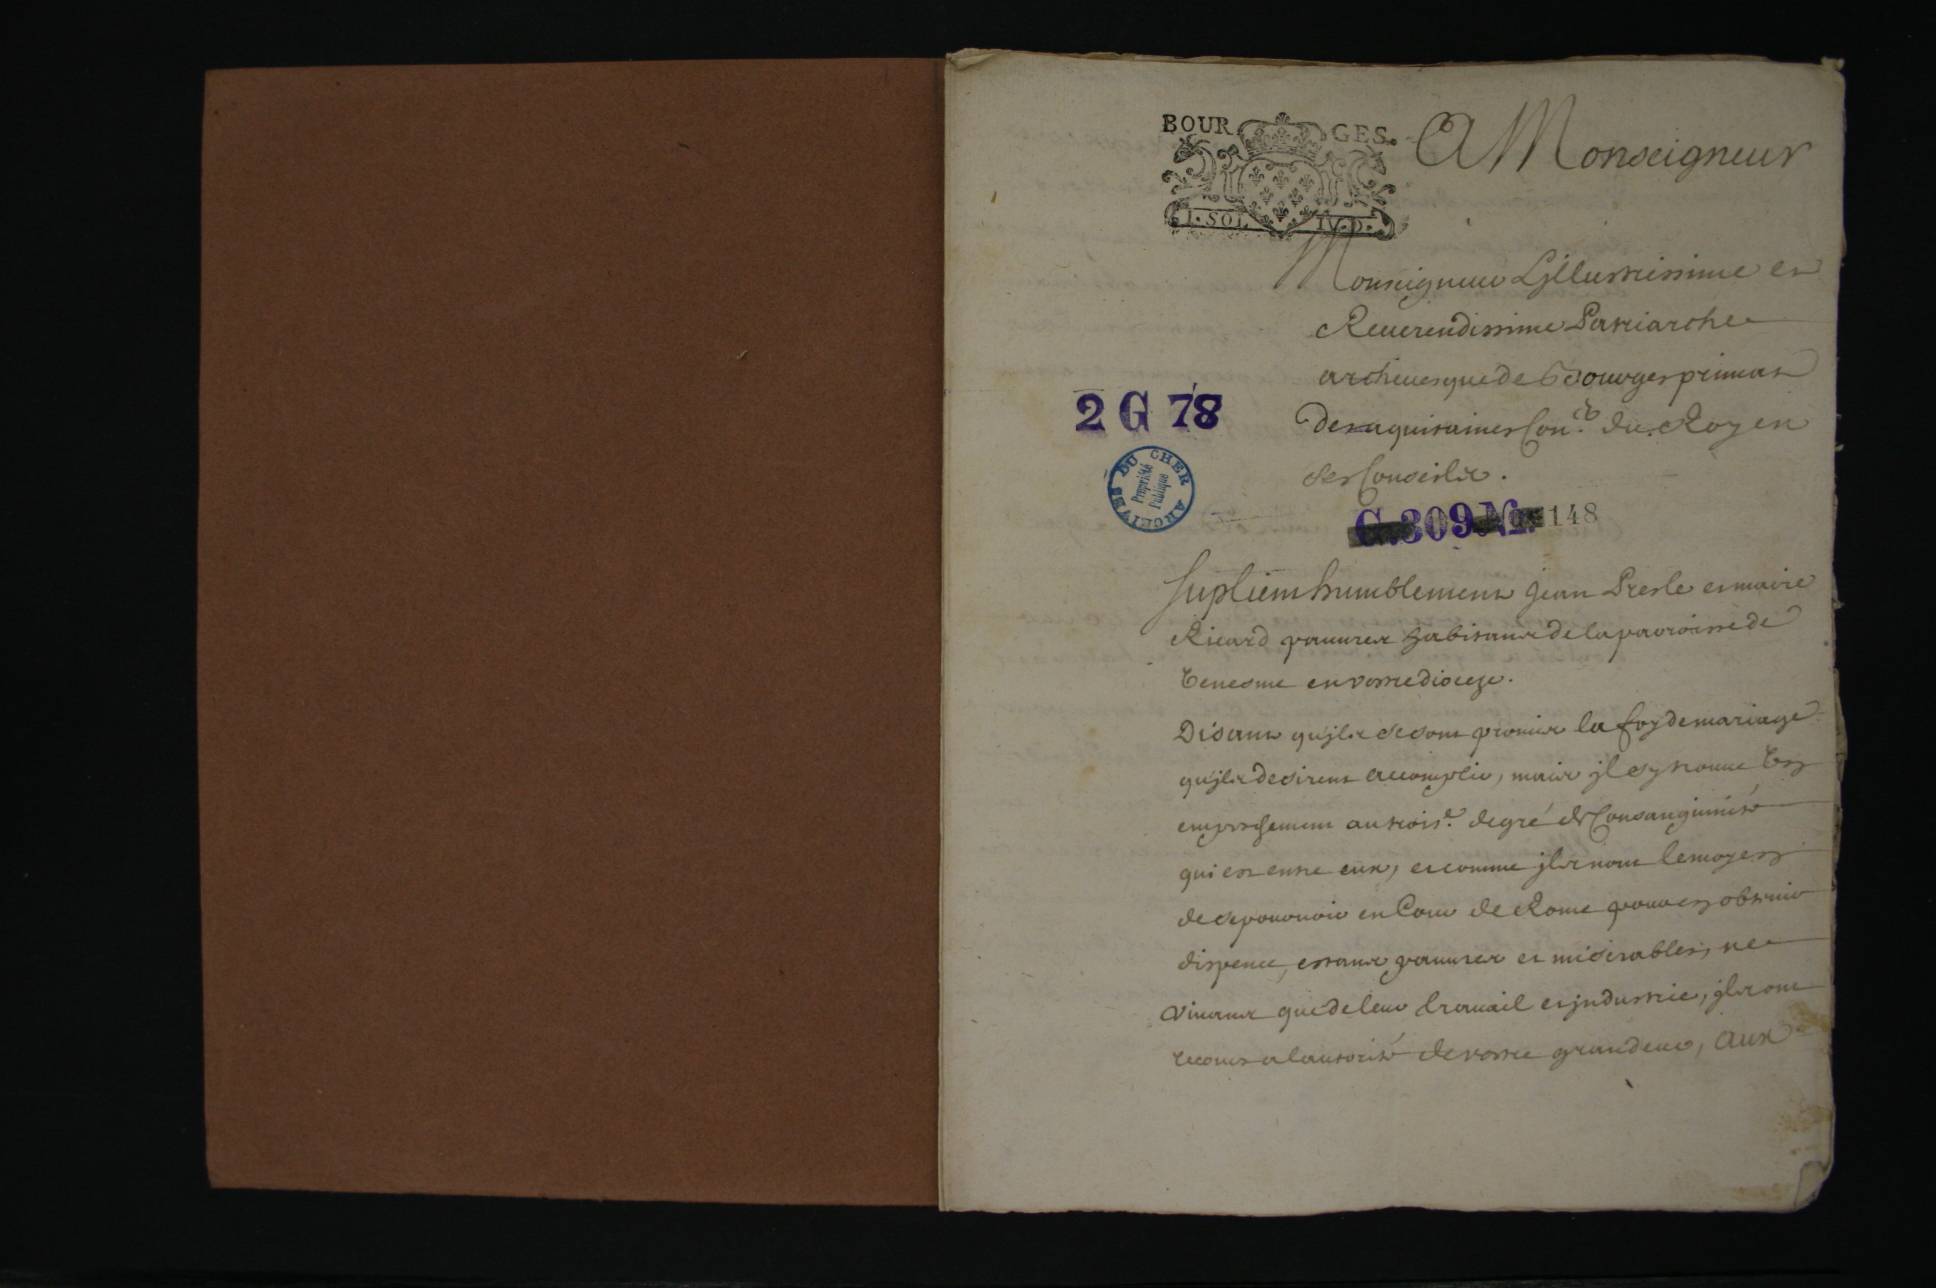 BOURGES.
A Monseigneur
I. SOL. IV. D.
Monseigneur Lillustrissime et
Reuerendissime Patriarche
archeuesque de Bourges primat
des aquitaines Con.er du Roy en
ses Conseils.
2 G 78
ARCHIVES DU CHER
Propriété
Publique
C. 309 No. 148
Suplient humblement Jean Presle et marie
Ricard pauures habitans de la parroisse de
Venesme en vostre dioceze.
Disant qujls se sont promis la foy de mariage
qujls desirent accomplir, mais jl sy trouue Un
empeschement au trois.e degré de Consanguinité
qui est entre eux, et comme jls nont le moyen
de se pouruoir en Cour de Rome pour en obtenir
dispence, estans pauures et miserables, ne
viuans que de leur trauail et jndustrie, jls ont
recours a lautorité de vostre grandeur, aux